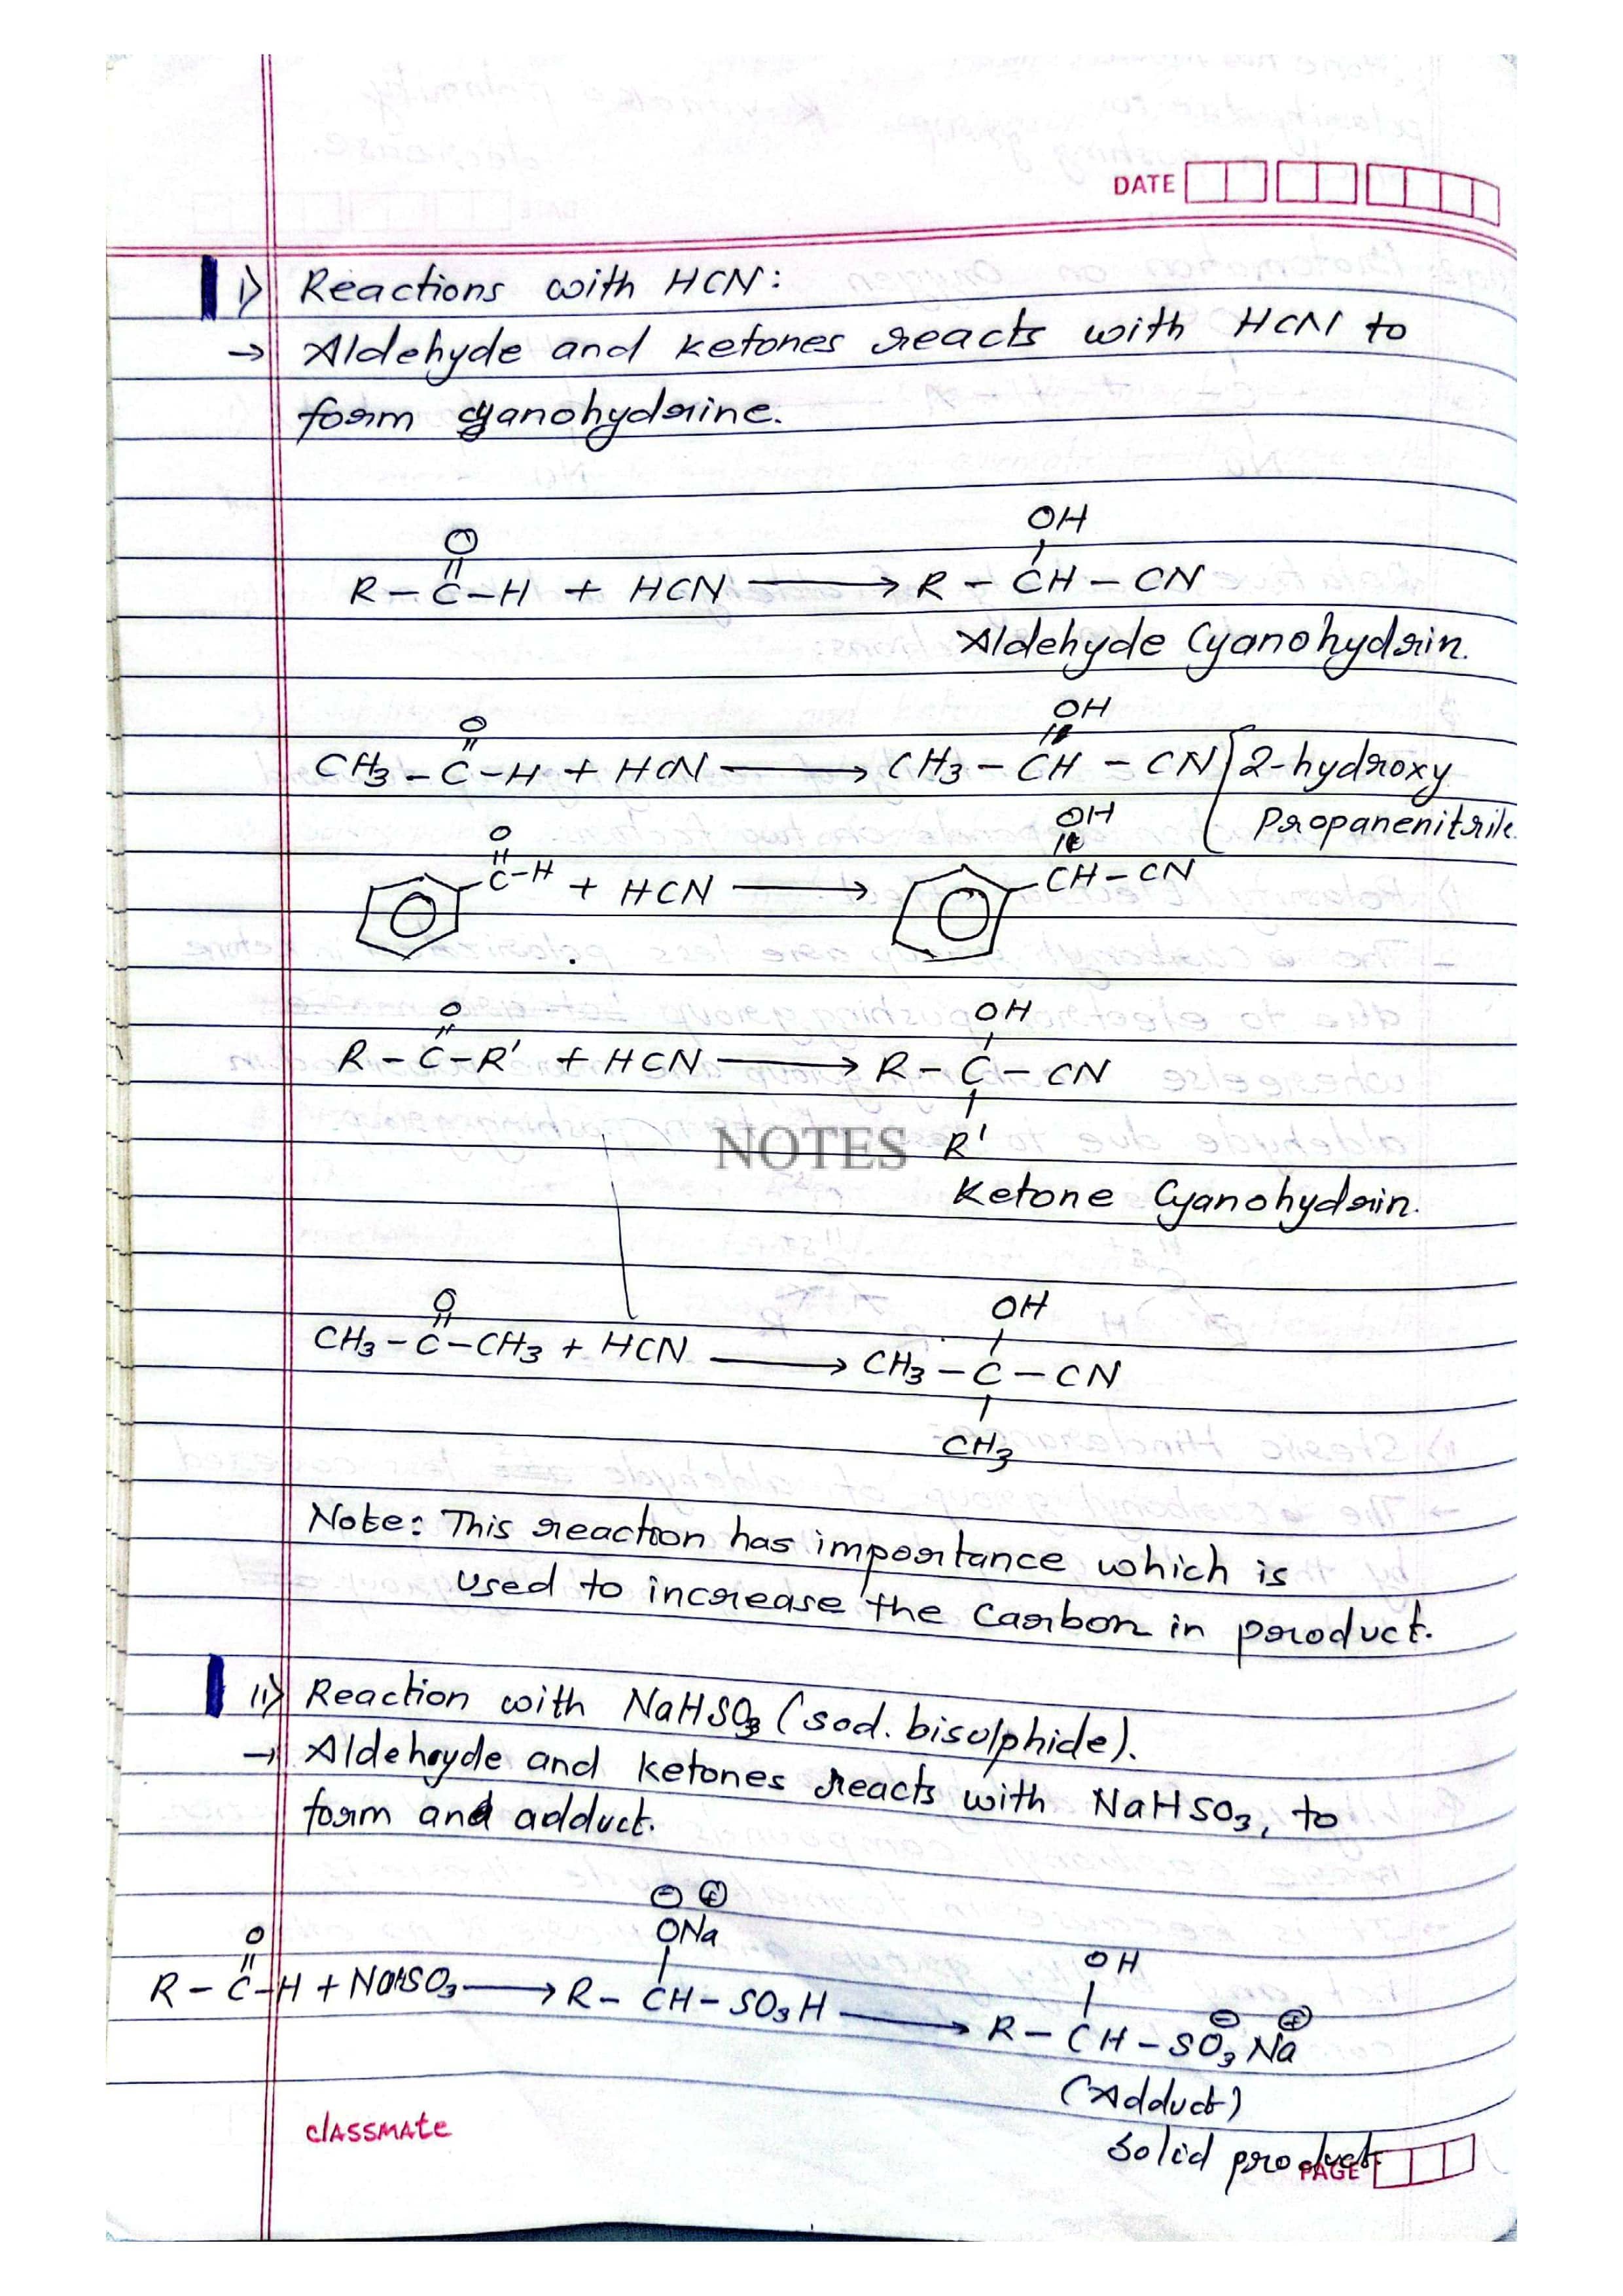 DATE
i) Reactions with HCN:
→ Aldehyde and ketones reacts with HCN to
form cyanohydrine.
O OH
R - C - H + HCN ⟶ R - CH - CN
Aldehyde Cyanohydrin.
O OH
CH3 - C - H + HCN ⟶ CH3 - CH - CN { 2-hydroxy
Propanenitrile.
O OH
C - H + HCN ⟶ CH - CN
O OH
R - C - R' + HCN ⟶ R - C - CN
R'
NOTES
Ketone Cyanohydrin.
O OH
CH3 - C - CH3 + HCN ⟶ CH3 - C - CN
CH3
Note: This reaction has importance which is
used to increase the Carbon in product.
ii) Reaction with NaHSO3 (sod. bisulphide).
→ Aldehyde and ketones reacts with NaHSO3, to
form and adduct.
⊖ ⊕
O ONa OH
R - C - H + NaHSO3 ⟶ R - CH - SO3H ⟶ R - CH - SO3⊖ Na⊕
(Adduct)
classmate
Solid product.
PAGE